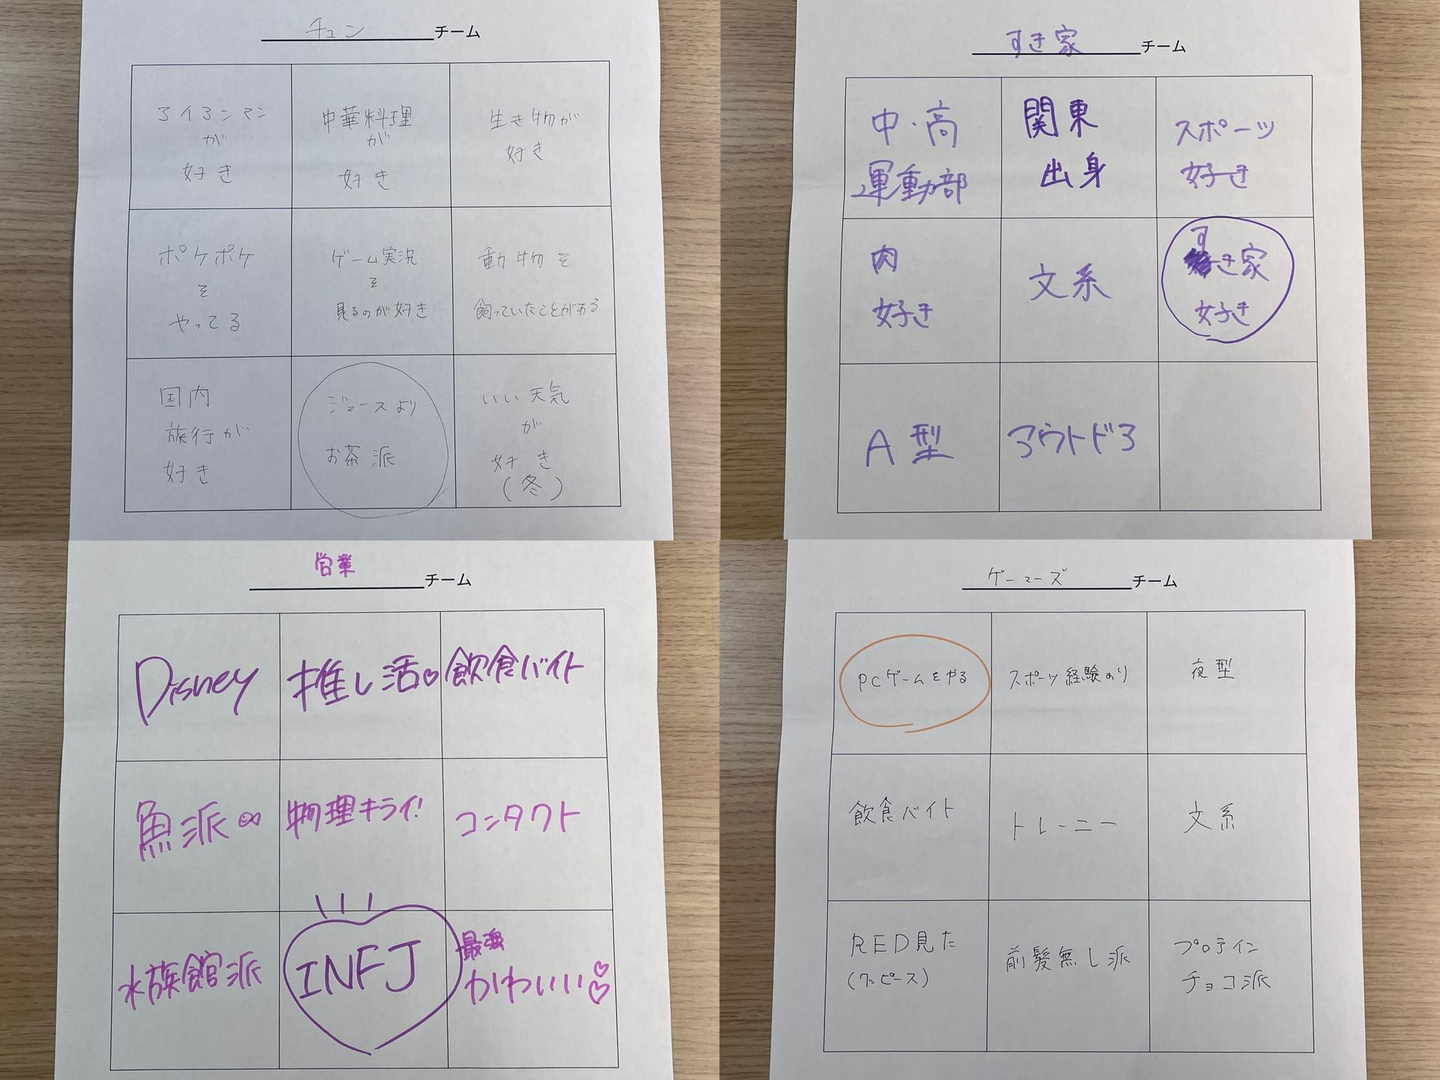 チュン チーム
アイアンマン
が
好き
中華料理
が
好き
生き物が
好き
ポケポケ
を
やってる
ゲーム実況
を
見るのが好き
動物を
飼っていたことがある
国内
旅行が
好き
ジュースより
お茶派
いい天気
が
好き
(冬)
すき家 チーム
中・高
運動部
関東
出身
スポーツ
好き
肉
好き
文系
すき家
好き
A型
アウトドア
営業 チーム
Disney
推し活♡
飲食バイト
魚派∞
物理キライ!
コンタクト
水族館派
INFJ
最強
かわいい♡♡
ゲーマーズ チーム
PCゲームをやる
スポーツ経験あり
夜型
飲食バイト
トレーニー
文系
RED見た
(ワンピース)
前髪無し派
プロテイン
チョコ派